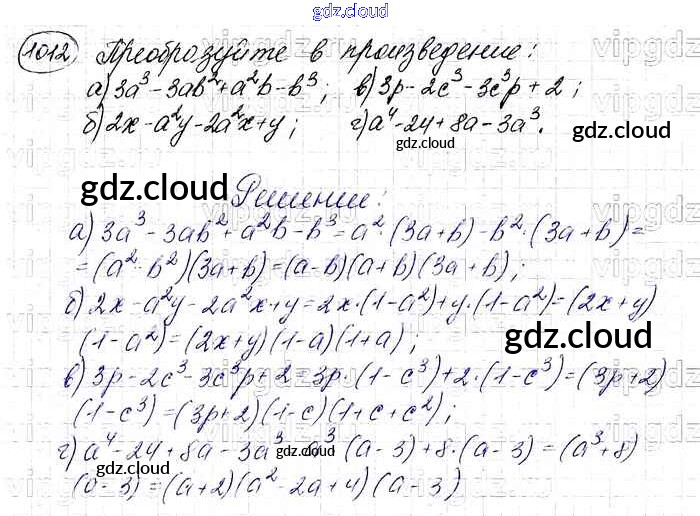 gdz.cloud
1012 Преобразуйте в произведение:
а) 3a³-3ab²+a²b-b³; в) 3p-2c³-3c³p+2;
б) 2x-a²y-2a²x+y; г) a⁴-24+8a-3a³.
gdz.cloud
gdz.cloud Решение:
а) 3a³-3ab²+a²b-b³=a²·(3a+b)-b²·(3a+b)=
=(a²-b²)(3a+b)=(a-b)(a+b)(3a+b);
б) 2x-a²y-2a²x+y=2x·(1-a²)+y·(1-a²)=(2x+y)
(1-a²)=(2x+y)(1-a)(1+a);
gdz.cloud
в) 3p-2c³-3c³p+2=3p·(1-c³)+2·(1-c³)=(3p+2)
(1-c³)=(3p+2)(1-c)(1+c+c²);
г) a⁴-24+8a-3a³=a³(a-3)+8·(a-3)=(a³+8)
gdz.cloud
gdz.cloud
gdz.cloud
(a-3)=(a+2)(a²-2a+4)(a-3)